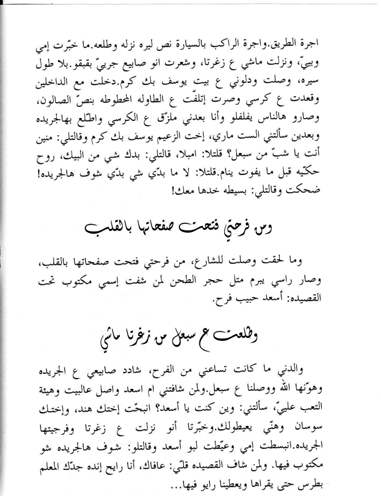 اجرة الطريق.واجرة الراكب بالسيارة نص ليره نزله وطلعه.ما خبّرت إمي
وبيي، ونزلت ماشي ع زغرتا، وشعرت انو صابيع جريي بقبقو.بلا طول
سيره، وصلت ودلوني ع بيت يوسف بك كرم.دخلت مع الداخلين
وقعدت ع كرسي وصرت إتلفّت ع الطاوله المحطوطه بنصّ الصالون،
وصارو هالناس يفلفلو وأنا بعدني ملزّق ع الكرسي واطلّع بهالجريده
وبعدين سألتني الست ماري، إخت الزعيم يوسف بك كرم وقالتلي: منين
أنت يا شبّ من سبعل؟ قلتلا: امبلا، قالتلي: بدك شي من البيك، روح
حكّيه قبل ما يفوت ينام.قلتلا: لا ما بدّي شي بدّي شوف هالجريده!
ضحكت وقالتلي: بسيطه خدها معك!
ومن فرحتي فتحت صفحاتها بالقلب
وما لحقت وصلت للشارع، من فرحتي فتحت صفحاتها بالقلب،
وصار راسي يبرم متل حجر الطحن لمن شفت إسمي مكتوب تحت
القصيده: أسعد حبيب فرح.
وطلعت ع سبعل من زغرتا ماشي
والدني ما كانت تساعني من الفرح، شادد صابيعي ع الجريده
وهوّنها الله ووصلنا ع سبعل.ولمن شافتني ام اسعد واصل عالبيت وهيئة
التعب علييّ، سألتني: وين كنت يا أسعد؟ انبحّت إختك هند، وإختك
سوسان وهنّي يعيطولك.وخبّرتا أنو نزلت ع زغرتا وفرجيتها
الجريده.انبسطت إمي وعيّطت لبو أسعد وقالتلو: شوف هالجريده شو
مكتوب فيها. ولمن شاف القصيده قلّي: عافاك، أنا رايح إنده جدّك المعلم
بطرس حتى يقراها ويعطينا رايو فيها...